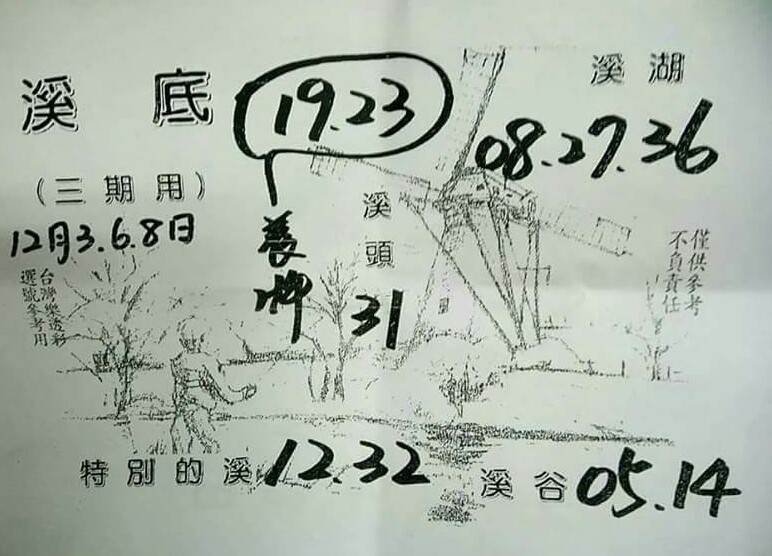 溪底
19.23
溪湖
08.27.36
(三期用)
12月3.6.8日
養牌
溪頭
31
僅供參考
不負責任
台灣樂透彩
選號參考用
特別的溪 12.32
溪谷 05.14